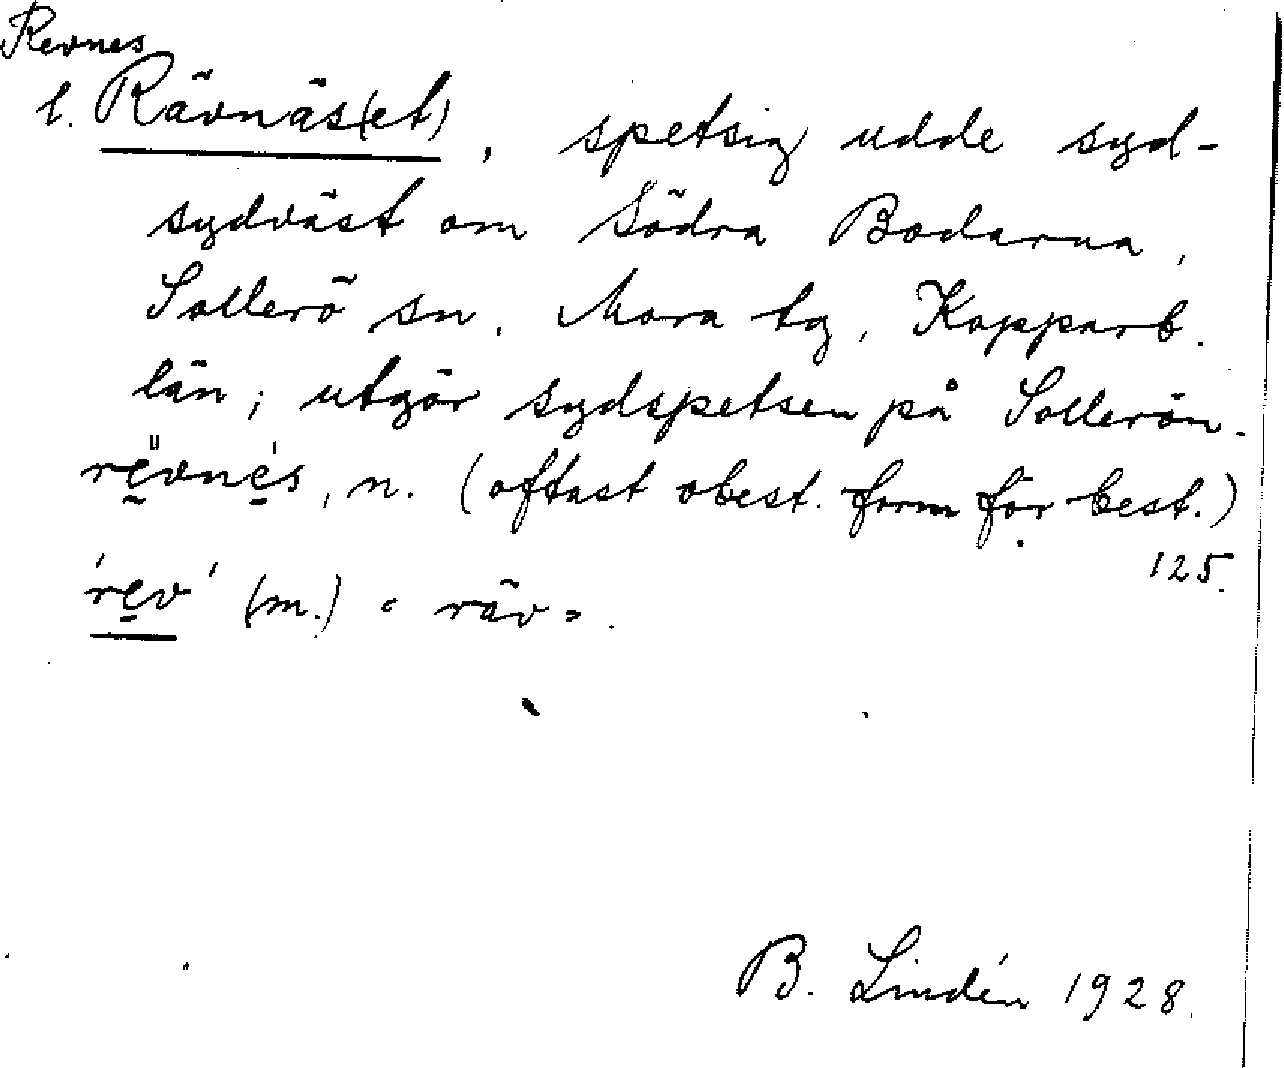 Revnes
l. Rävnäs(et), spetsig udde syd-
sydväst om Södra Bodarna,
Sollerö sn, Mora tg, Kopparb.
län; utgör sydspetsen på Sollerön.
rë̱vne̱s, n. (oftast obest. form för best.)
125.
're̱v' (m.) "räv".
B. Lindén 1928.